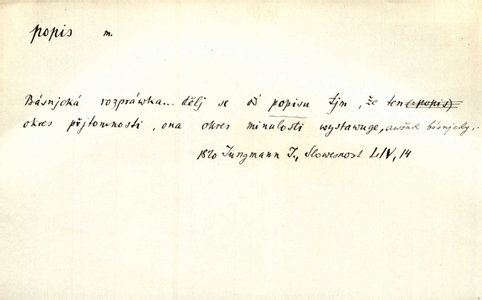 popis m.
Básnjcká rozpráwka... dělj se od popisu tjm, že ten (popis)
okres přjtomnosti, ona okres minulosti wystawuge, awšak básnjcky.
1820 Jungmann J., Slowesnost LIV, 14